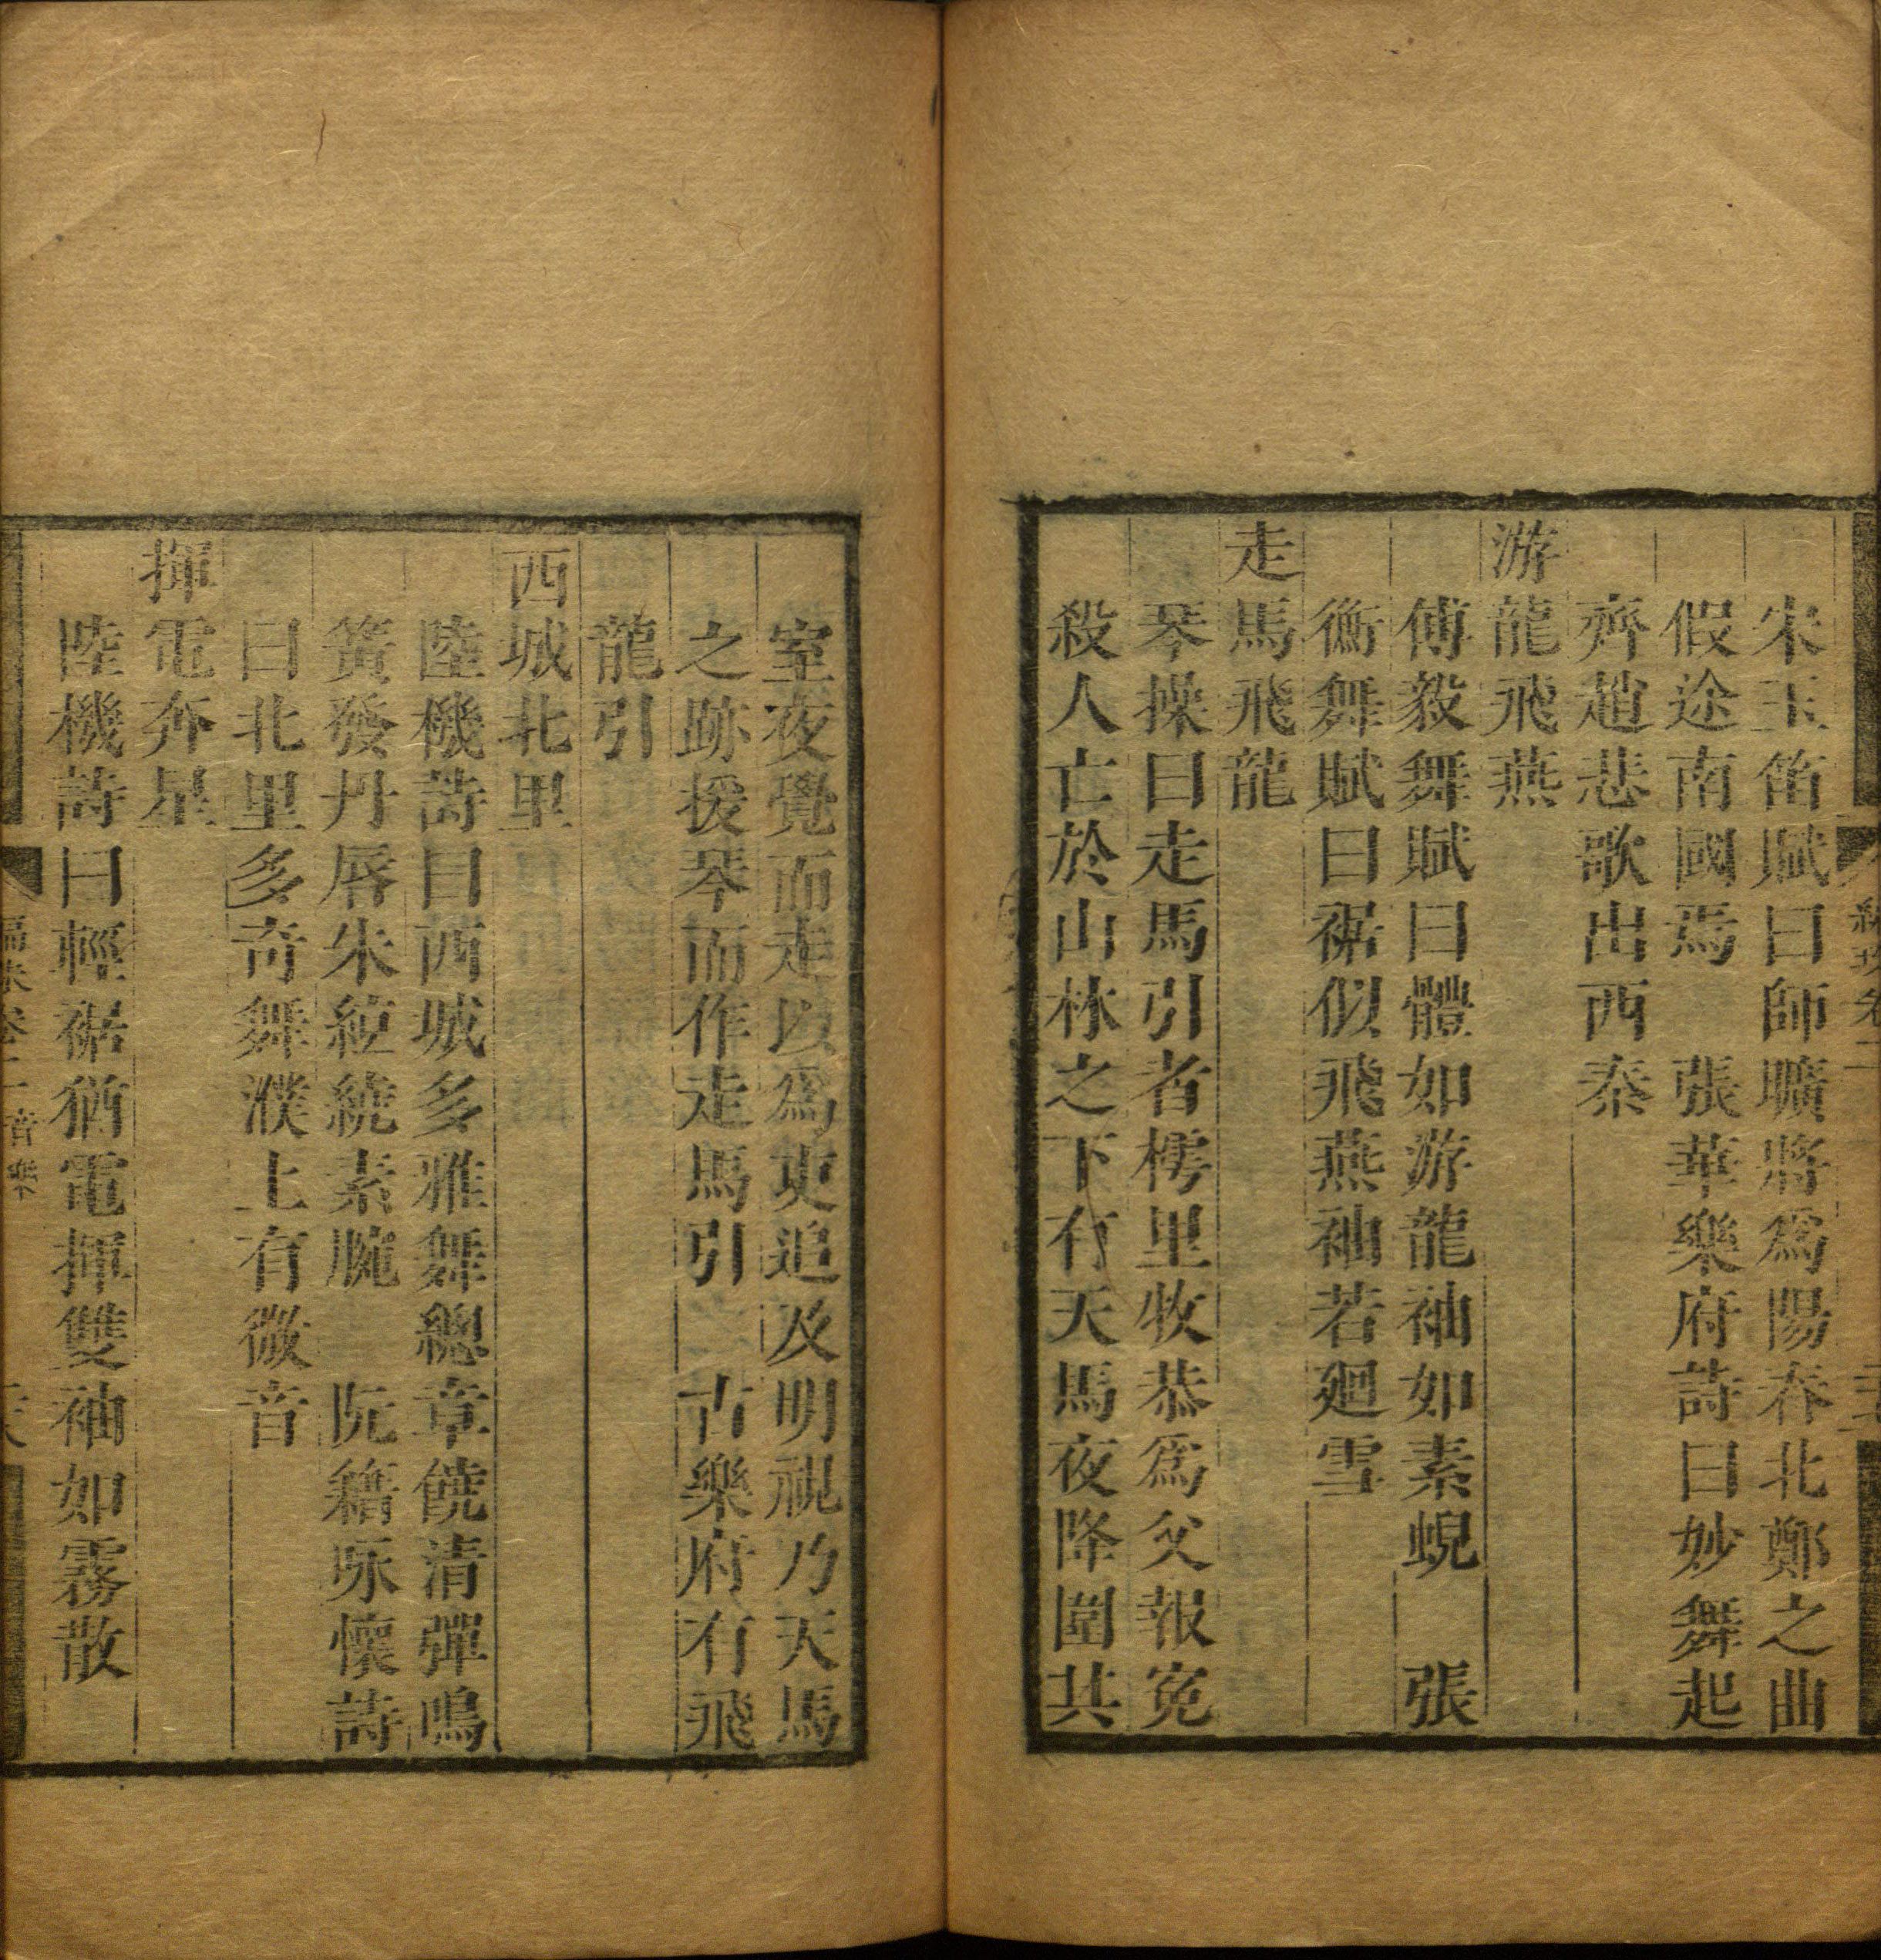 宋玉笛賦曰師曠將爲陽春北鄭之曲
假途南國焉　張華樂府詩曰妙舞起
齊趙悲歌出西秦
游龍飛燕
傅毅舞賦曰體如游龍袖如素蜺　張
衡舞賦曰裾似飛燕袖若廻雪
走馬飛龍
琴操曰走馬引者樗里牧恭爲父報寃
殺人亡於山林之下有天馬夜降圍其
室夜覺而走以爲吏追及明視乃天馬
之跡援琴而作走馬引　古樂府有飛
龍引
西城北里
陸機詩曰西城多雅舞總章饒清彈鳴
簧發丹唇朱絃繞素腕　阮籍咏懷詩
曰北里多奇舞濮上有微音
揮電奔星
陸機詩曰輕裾猶電揮雙袖如霧散
編珠卷二 音樂